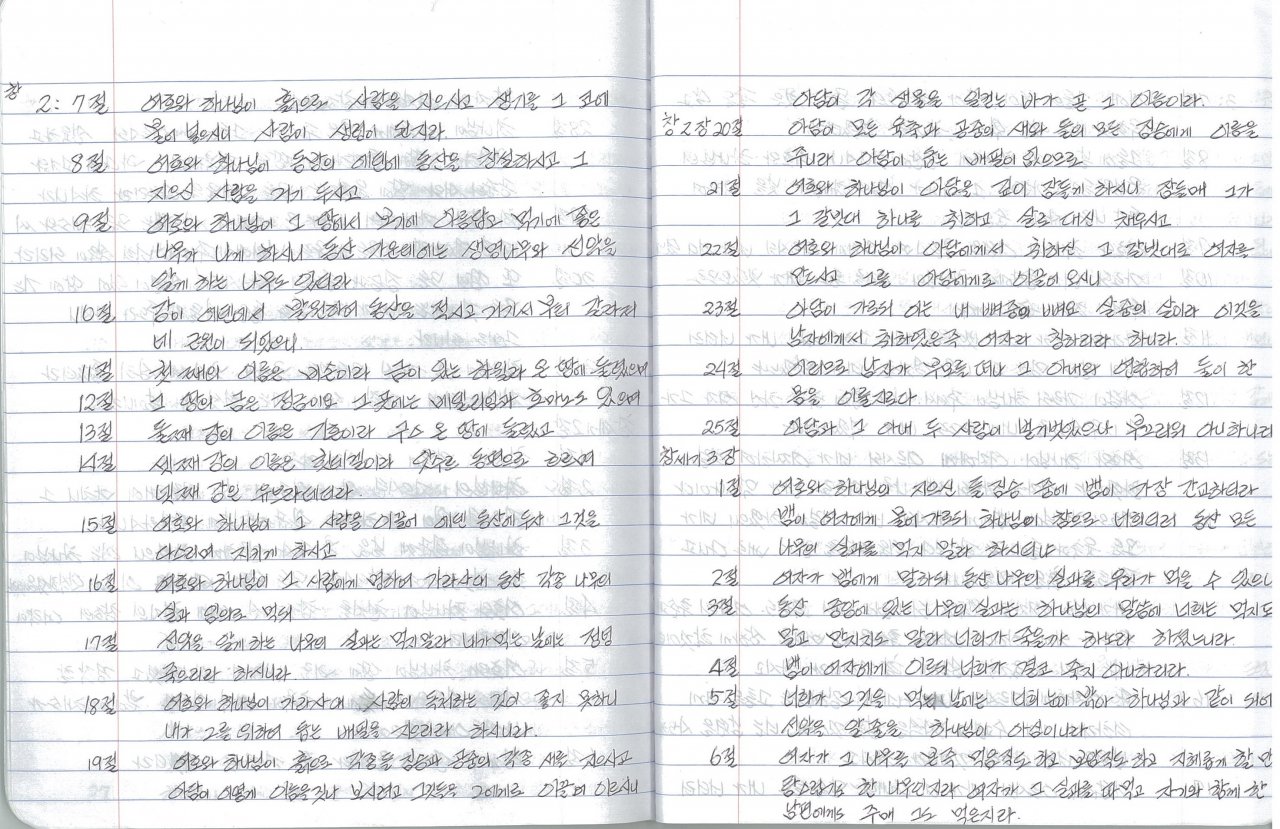 창
2:7절 여호와 하나님이 흙으로 사람을 지으시고 생기를 그 코에
불어 넣으시니 사람이 생령이 된지라
8절 여호와 하나님이 동방의 에덴에 동산을 창설하시고 그
지으신 사람을 거기 두시고
9절 여호와 하나님이 그 땅에서 보기에 아름답고 먹기에 좋은
나무가 나게 하시니 동산 가운데에는 생명나무와 선악을
알게 하는 나무도 있더라
10절 강이 에덴에서 발원하여 동산을 적시고 거기서 부터 갈라져
네 근원이 되었으니.
11절 첫 째의 이름은 비손이라 금이 있는 하윌라 온 땅에 둘렀으며
12절 그 땅의 금은 정금이요 그 곳에는 베델리엄과 호마노도 있으며
13절 둘째 강의 이름은 기혼이라 구스 온 땅에 둘렀고
14절 셋째 강의 이름은 힛데겔이라 앗수르 동편으로 흐르며
넷째 강은 유브라데더라.
15절 여호와 하나님이 그 사람을 이끌어 에덴 동산에 두사 그것을
다스리며 지키게 하시고
16절 여호와 하나님이 그 사람에게 명하여 가라사대 동산 각종 나무의
실과 임의로 먹되
17절 선악을 알게 하는 나무의 실과는 먹지말라 네가 먹는 날에는 정녕
죽으리라 하시니라.
18절 여호와 하나님이 가라사대 사람의 독처하는 것이 좋지 못하니
내가 그를 위하여 돕는 배필을 지으리라 하시니라.
19절 여호와 하나님이 흙으로 각종들 짐승과 공중의 각종 새를 지으시고
아담이 어떻게 이름을 짓나 보시려고 그것들을 그에게로 이끌어 이르시니
아담이 각 생물을 일컫는 바가 곧 그 이름이라.
창2장20절 아담이 모든 육축과 공중의 새와 들의 모든 짐승에게 이름을
주니라 아담이 돕는 배필이 없으므로
21절 여호와 하나님이 아담을 깊이 잠들게 하시니 잠들매 그가
그 갈빗대 하나를 취하고 살로 대신 채우시고
22절 여호와 하나님이 아담에게서 취하신 그 갈빗대로 여자를
만드시고 그를 아담에게로 이끌어 오시니
23절 아담이 가로되 이는 내 뼈중의 뼈요 살중의 살이라 이것을
남자에게서 취하였은즉 여자라 칭하리라 하니라.
24절 이러므로 남자가 부모를 떠나 그 아내와 연합하여 둘이 한
몸을 이룰지로다
25절 아담과 그 아내 두 사람이 벌거벗었으나 부끄러워 아니하니라
창세기3장
1절 여호와 하나님의 지으신 들짐승 중에 뱀이 가장 간교하더라
뱀이 여자에게 물어 가로되 하나님이 참으로 너희더러 동산 모든
나무의 실과를 먹지 말라 하시더냐
2절 여자가 뱀에게 말하되 동산 나무의 실과를 우리가 먹을 수 있으나
3절 동산 중앙에 있는 나무의 실과는 하나님의 말씀에 너희는 먹지도
말고 만지지도 말라 너희가 죽을까 하노라 하셨느니라.
4절 뱀이 여자에게 이르되 너희가 결코 죽지 아니하리라.
5절 너희가 그것을 먹는 날에는 너희 눈이 밝아 하나님과 같이 되어
선악을 알 줄을 하나님이 아심이니라.
6절 여자가 그 나무를 본즉 먹음직도 하고 보암직도 하고 지혜롭게 할 만
탐스럽기도 한 나무인지라 여자가 그 실과를 따먹고 자기와 함께 한
남편에게도 주매 그도 먹은지라.